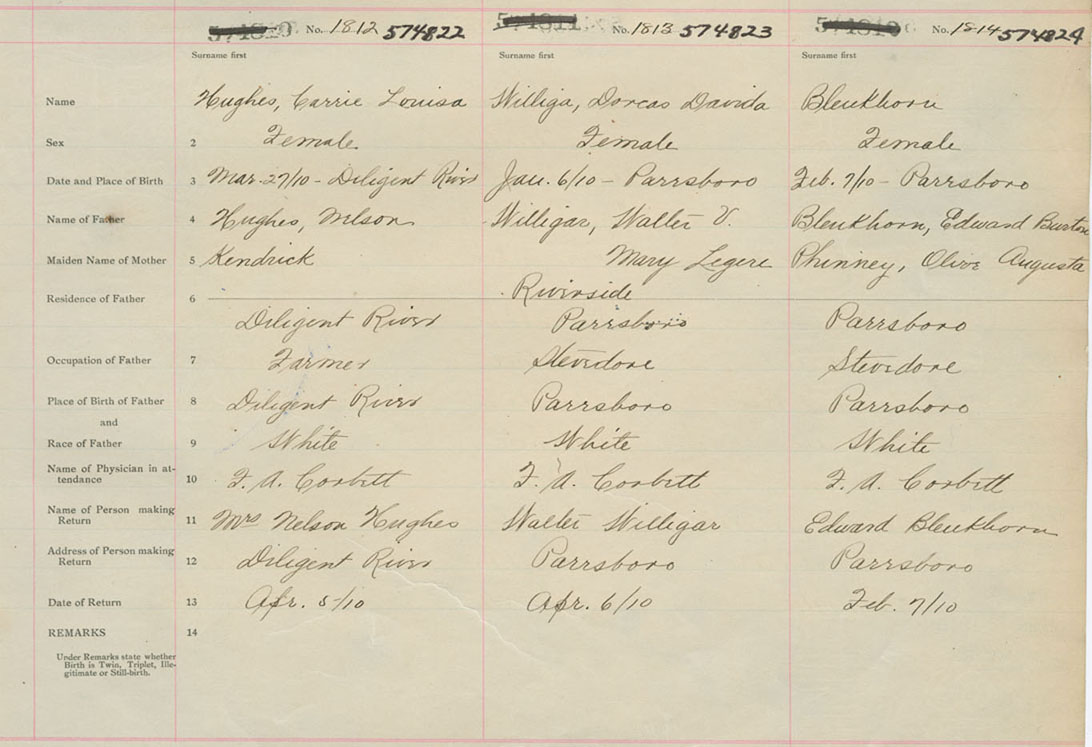 No. 1812 574822 No. 1813 574823 No. 1814 574824
Surname first Surname first Surname first
Name Hughes, Carrie Louisa Williga, Dorcas Davida Blenkhorn
Sex 2 Female Female Female
Date and Place of Birth 3 Mar. 27/10 - Diligent River Jan. 6/10 - Parrsboro Feb. 7/10 - Parrsboro
Name of Father 4 Hughes, Nelson Willigar, Walter V. Blenkhorn, Edward Burton
Maiden Name of Mother 5 Kendrick Mary Legere Phinney, Olive Augusta
Riverside
Residence of Father 6 Diligent River Parrsboro Parrsboro
Occupation of Father 7 Farmer Stevidore Stevidore
Place of Birth of Father 8 Diligent River Parrsboro Parrsboro
and
Race of Father 9 White White White
Name of Physician in at-
tendance 10 F. A. Corbett F. A. Corbett F. A. Corbett
Name of Person making
Return 11 Mrs Nelson Hughes Walter Willigar Edward Blenkhorn
Address of Person making
Return 12 Diligent River Parrsboro Parrsboro
Date of Return 13 Apr. 5/10 Apr. 6/10 Feb. 7/10
REMARKS 14
Under Remarks state whether
Birth is Twin, Triplet, Ille-
gitimate or Still-birth.